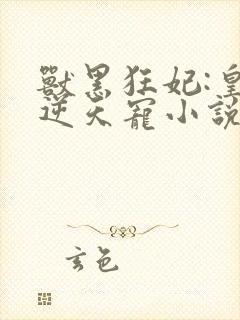 獸黑狂妃:皇
逆天寵小說
玄色